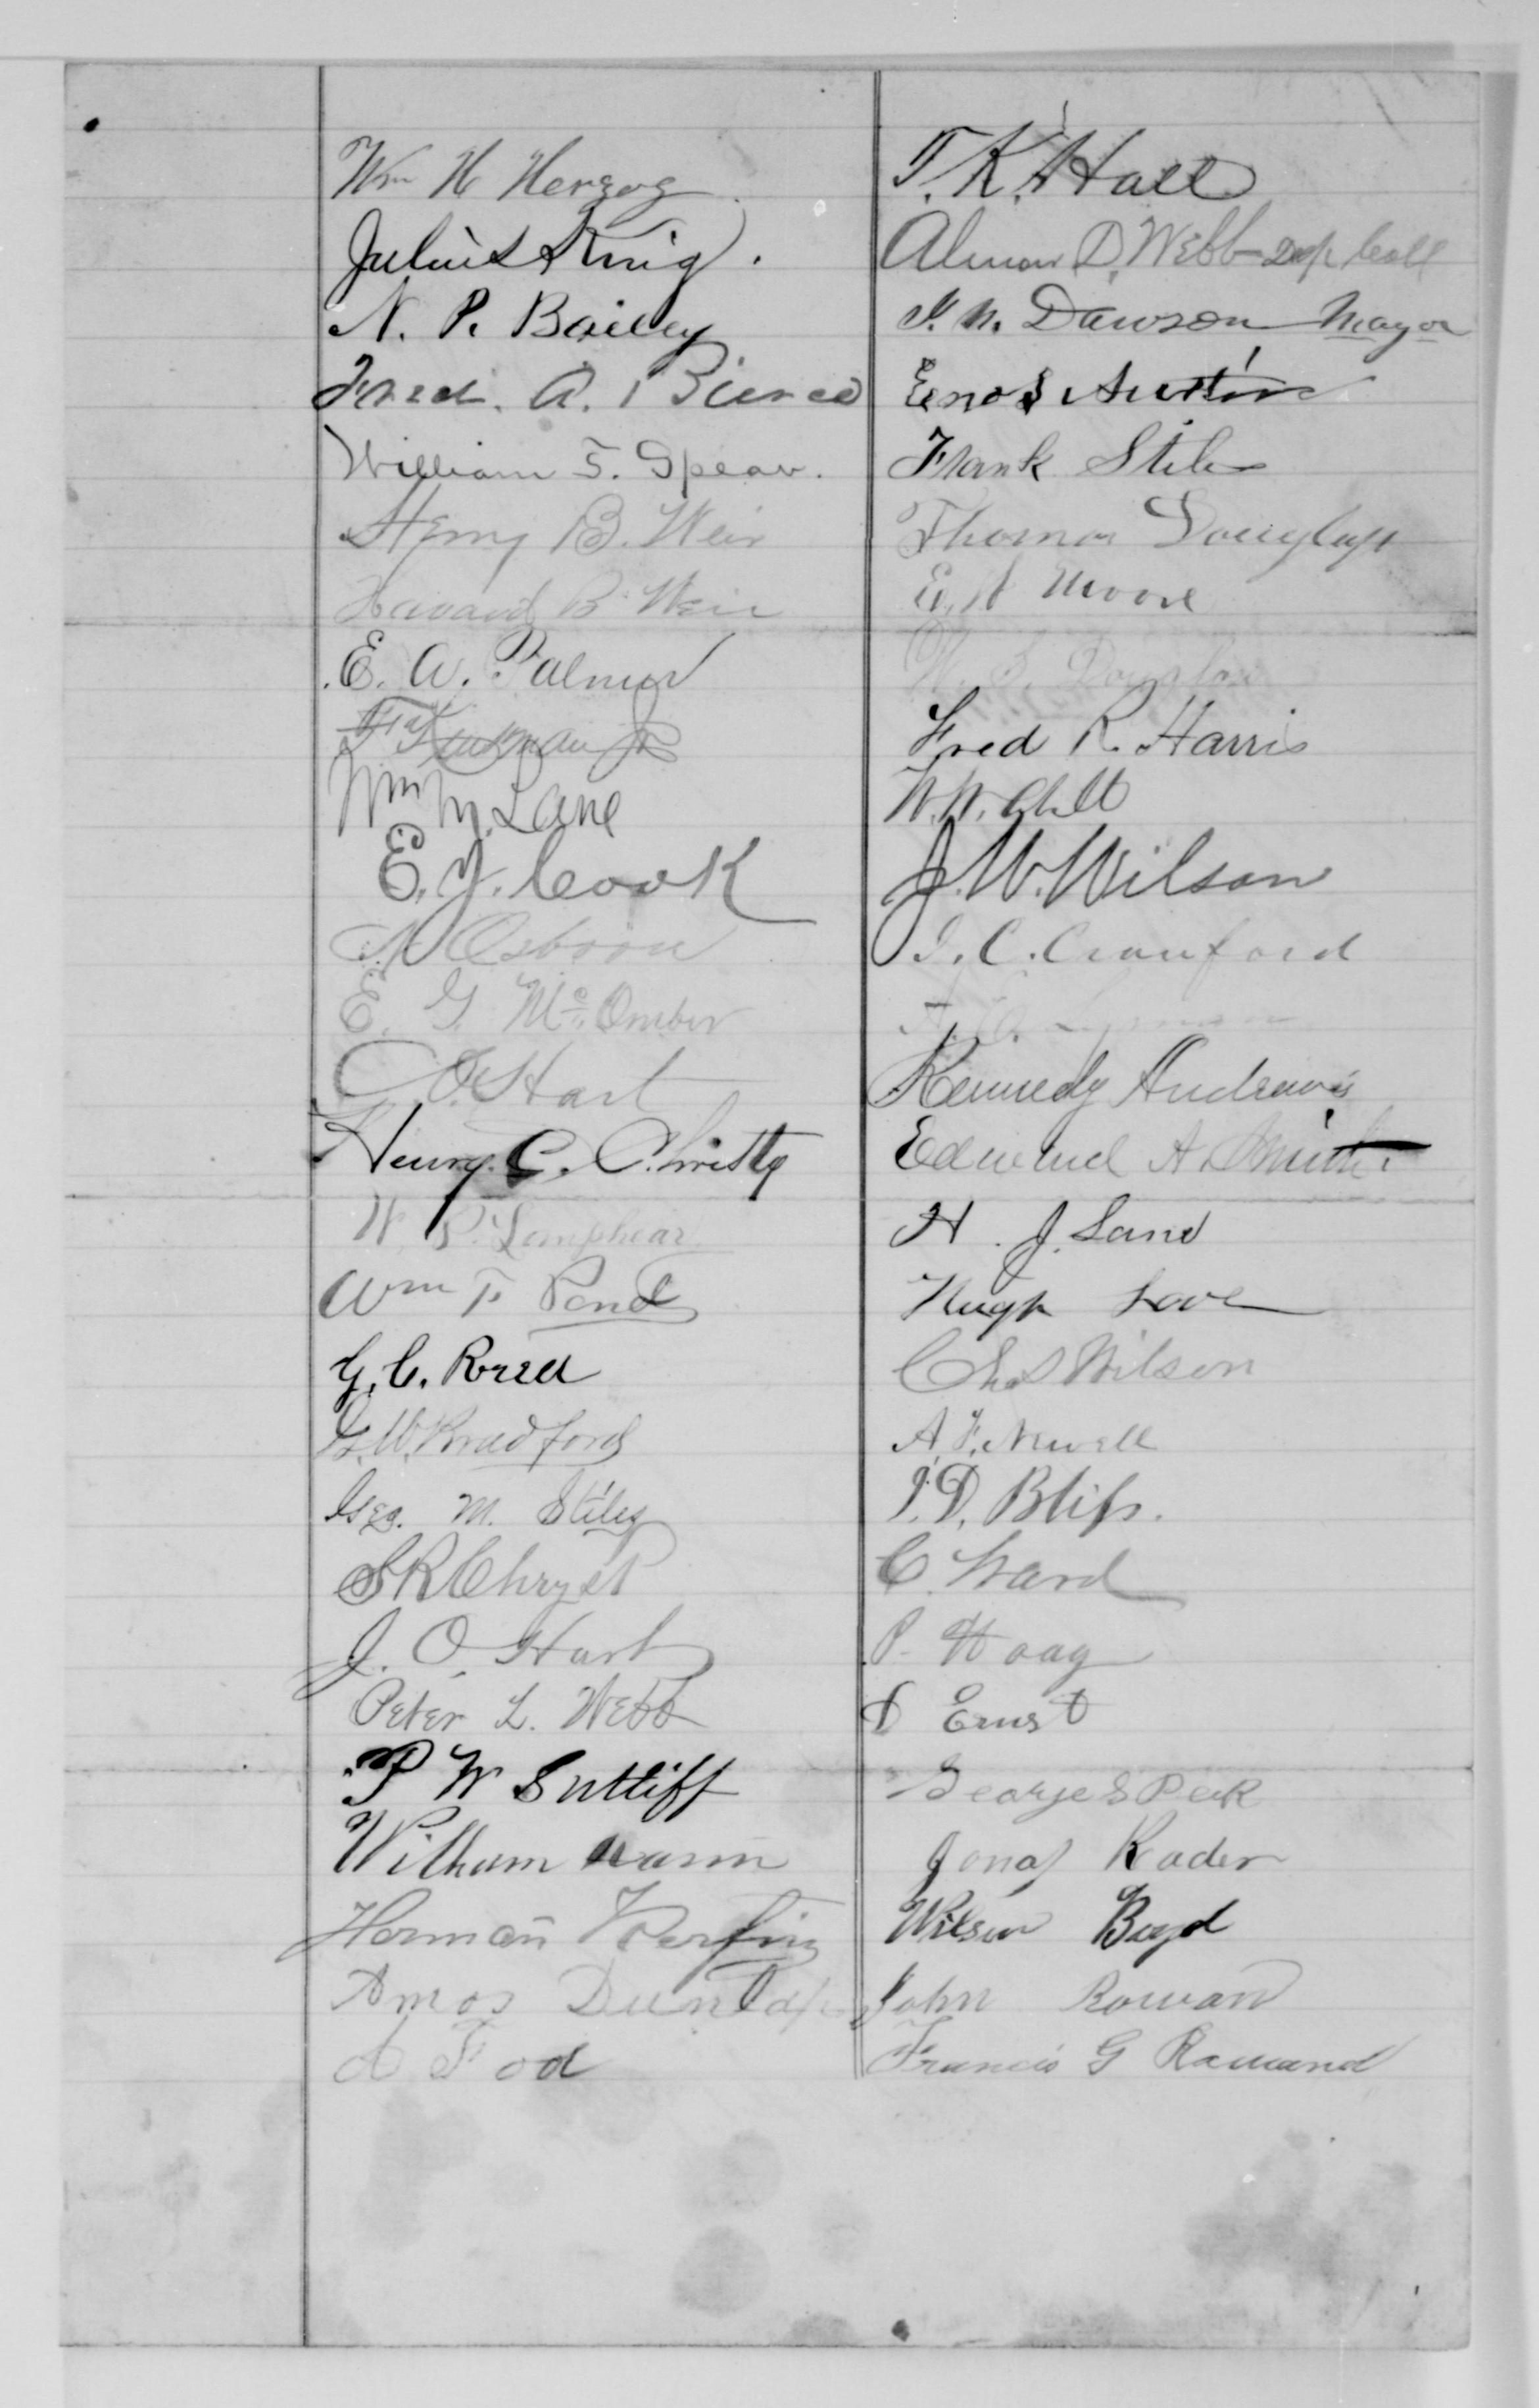 Wm H Herzog
Julius King.
N. P. Bailey
Fred. A. Bierce
William T. Spear.
Henry B. Weir
Havard B. Weir
E. A. Palmer
Jr
Wm M. Lane
E. J. Cook
N Osborn
E. G. McOmber
C O. Hart
Henry C. Christy
W P. Lamphear
Wm F. Pond
G. C. Reed
G. W. Bradford
Geo. M. Stiles
S R Chryst
J. O. Hart
Peter L. Webb
P W Sutliff
William
Herman
Amos Dunlap
Tod
T. K. Hall
Almon D. Webb Dep Coll
Dawson Mayor
Enos Austin
Frank Stiles
Thomas Douglass
E. W Moore
W. S.
Fred R. Harris
W. W.
J. W. Wilson
J. C. Crawford
Lyman
Kennedy Andrews
Edmund A. Smith.
H. J. Lane
Hugh Love
Chas Wilson
A. F. Newell
T. D. Bliss.
C. Ward
P. Hoag
D Ernst
George S Peck
Jonas Rader
Wilson Boyd
John Rowan
Francis G